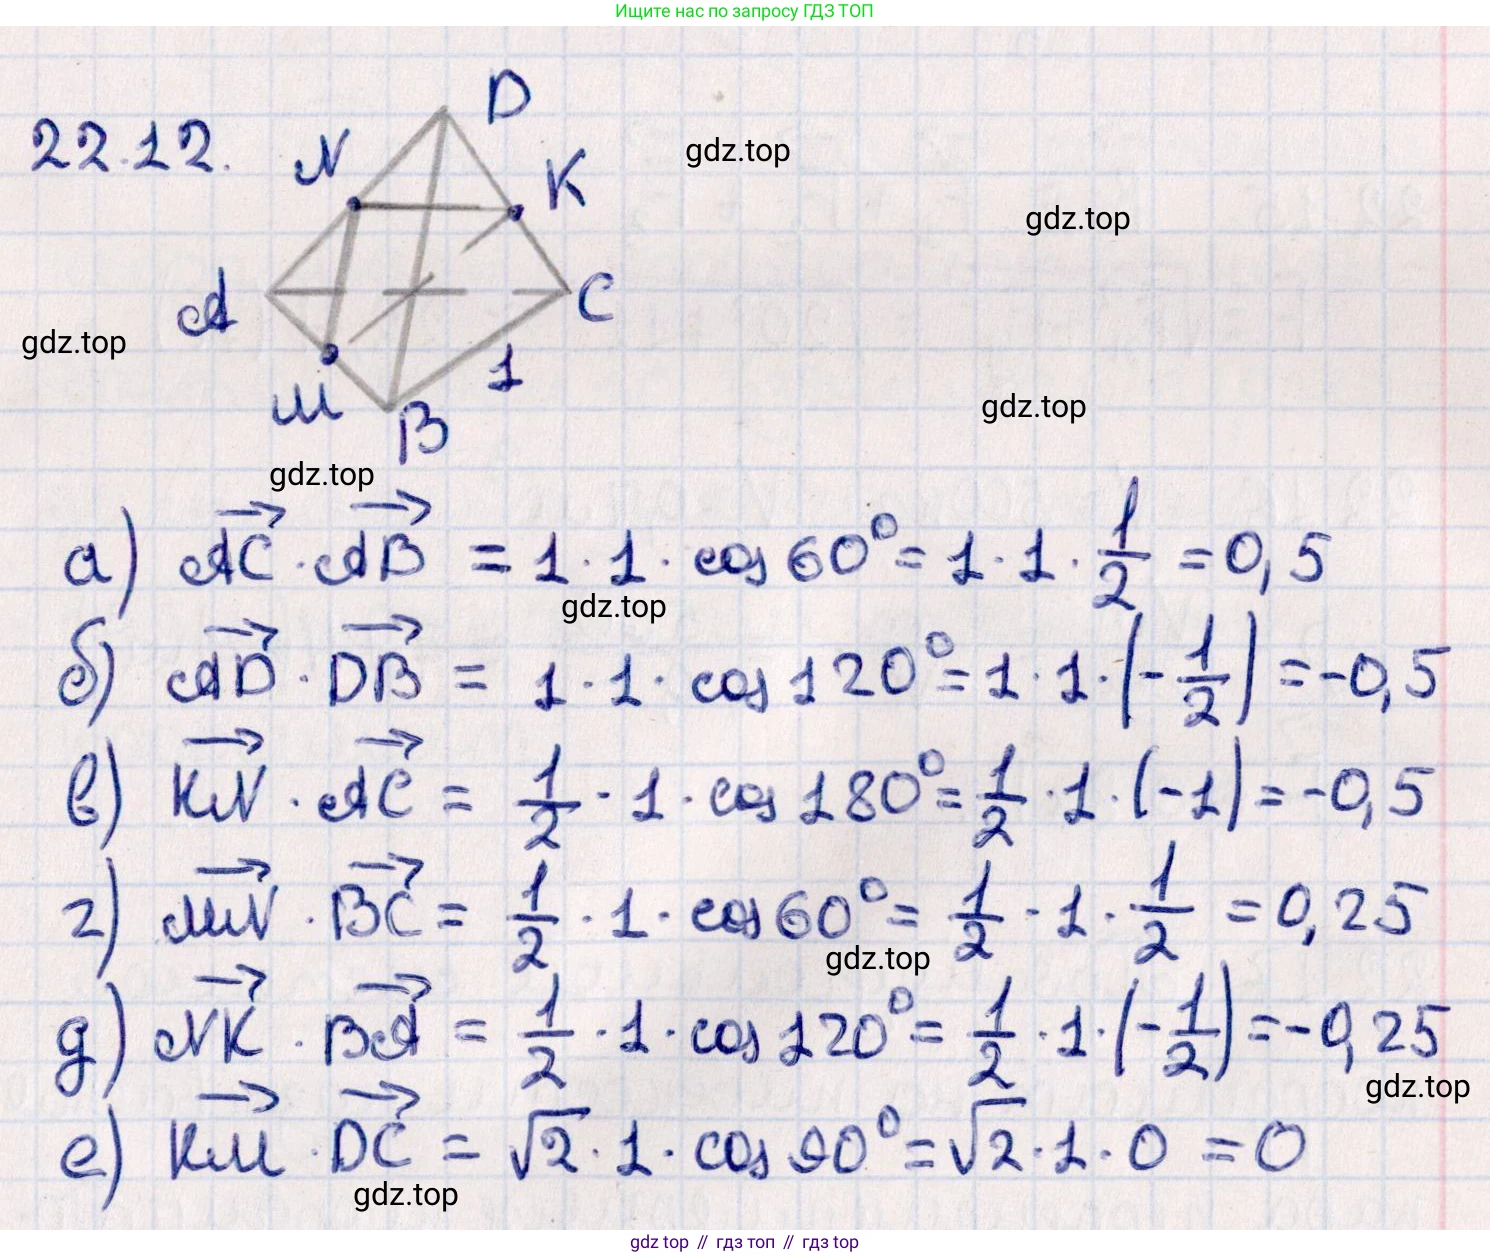 Ищите нас по запросу ГДЗ ТОП
22.12.
D
N
K
gdz.top
gdz.top
A
C
gdz.top
1
M
B
gdz.top
gdz.top
а) AC→ · AB→ = 1 · 1 · cos 60° = 1 · 1 · 1/2 = 0,5
gdz.top
б) AD→ · DB→ = 1 · 1 · cos 120° = 1 · 1 · (-1/2) = -0,5
в) KN→ · AC→ = 1/2 · 1 · cos 180° = 1/2 · 1 · (-1) = -0,5
г) MN→ · BC→ = 1/2 · 1 · cos 60° = 1/2 · 1 · 1/2 = 0,25
gdz.top
д) NK→ · BA→ = 1/2 · 1 · cos 120° = 1/2 · 1 · (-1/2) = -0,25
gdz.top
е) KM→ · DC→ = √2 · 1 · cos 90° = √2 · 1 · 0 = 0
gdz.top
gdz top // гдз топ // гдз top